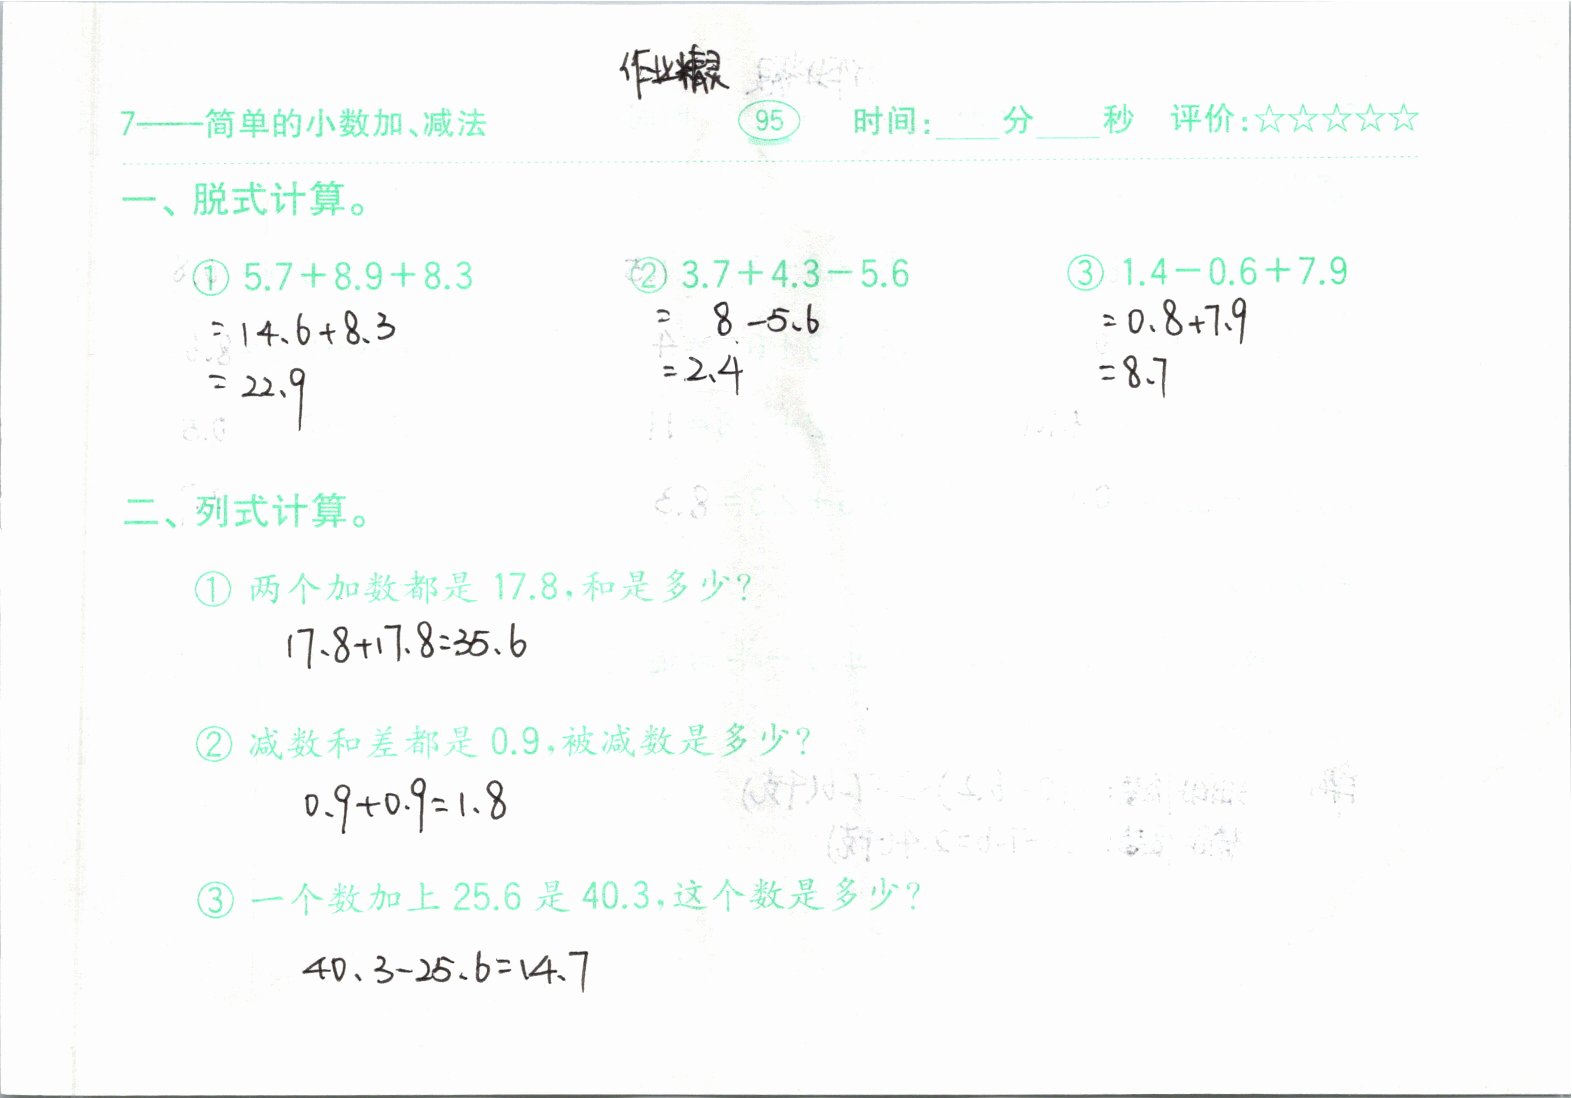 作业精灵
7——简单的小数加、减法 95 时间:____分____秒 评价:☆☆☆☆☆
一、脱式计算。
① 5.7+8.9+8.3 ② 3.7+4.3-5.6 ③ 1.4-0.6+7.9
=14.6+8.3 = 8-5.6 =0.8+7.9
=22.9 =2.4 =8.7
二、列式计算。
① 两个加数都是 17.8,和是多少?
17.8+17.8=35.6
② 减数和差都是 0.9,被减数是多少?
0.9+0.9=1.8
③ 一个数加上 25.6 是 40.3,这个数是多少?
40.3-25.6=14.7